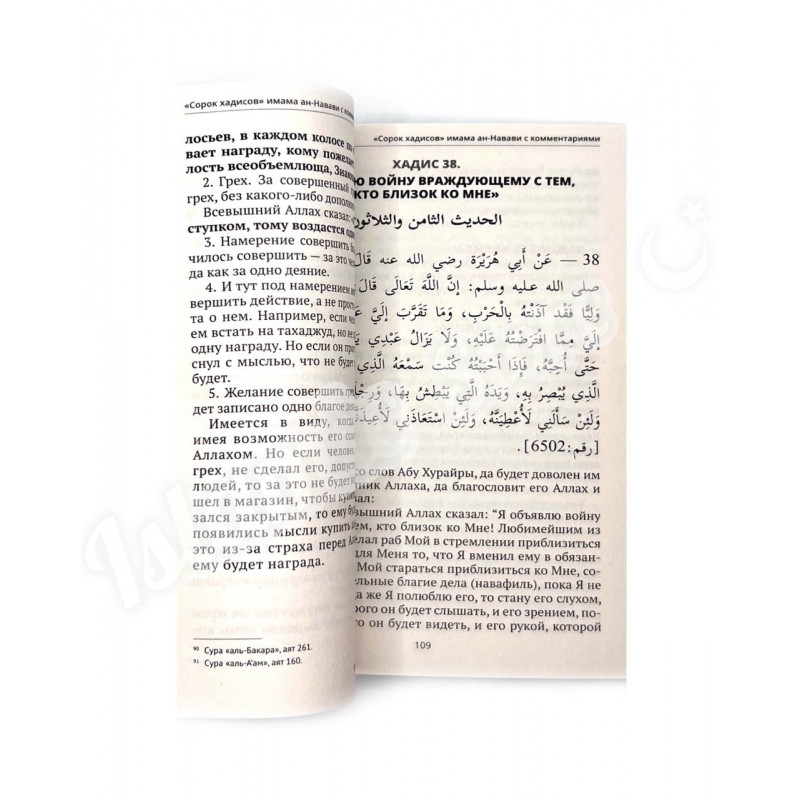 «Сорок хадисов» имама ан-Навави с
лосьев, в каждом колосе по
вает награду, кому
лость всеобъемлюща,
2. Грех. За совершенный
грех, без какого-либо
Всевышний Аллах сказал:
ступком, тому воздастся
3. Намерение совершить
чилось совершить — за это
да как за одно деяние.
4. И тут под намерением
вершить действие, а не
та о нем. Например, если
ем встать на тахаджуд, но
одну награду. Но если он
снул с мыслью, что не
будет.
5. Желание совершить
дет записано одно благое
Имеется в виду, когда
имея возможность его
Аллахом. Но если человек
грех, не сделал его,
людей, то за это не
шел в магазин, чтобы
зался закрытым, то ему
появились мысли купить
это из-за страха перед
ему будет награда.
90 Сура «аль-Бакара», аят 261.
91 Сура «аль-А'ам», аят 160.
«Сорок хадисов» имама ан-Навави с комментариями
ХАДИС 38.
Ю ВОЙНУ ВРАЖДУЮЩЕМУ С ТЕМ,
КТО БЛИЗОК КО МНЕ»
الحديث الثامن والثلاثون
38 — عَنْ أَبِي هُرَيْرَةَ رضي الله عنه قَالَ
صلى الله عليه وسلم: إِنَّ اللَّهَ تَعَالَى قَالَ
وَلِيًّا فَقَدْ آذَنْتُهُ بِالْحَرْبِ، وَمَا تَقَرَّبَ إِلَيَّ
إِلَيَّ مِمَّا افْتَرَضْتُهُ عَلَيْهِ، وَلَا يَزَالُ عَبْدِي
حَتَّى أُحِبَّهُ، فَإِذَا أَحْبَبْتُهُ كُنْت سَمْعَهُ الَّذِي
الَّذِي يُبْصِرُ بِهِ، وَيَدَهُ الَّتِي يَبْطِشُ بِهَا،
وَلَئِنْ سَأَلَنِي لَأُعْطِيَنَّهُ، وَلَئِنْ اسْتَعَاذَنِي
[رقم:6502].
со слов Абу Хурайры, да будет доволен им
ник Аллаха, да благословит его Аллах и
ал:
вышний Аллах сказал: “Я объявлю войну
ем, кто близок ко Мне! Любимейшим из
елал раб Мой в стремлении приблизиться
для Меня то, что Я вменил ему в обязан-
Мой стараться приблизиться ко Мне, со-
ельные благие дела (навафиль), пока Я не
да же Я полюблю его, то стану его слухом,
рого он будет слышать, и его зрением, по-
о он будет видеть, и его рукой, которой
109